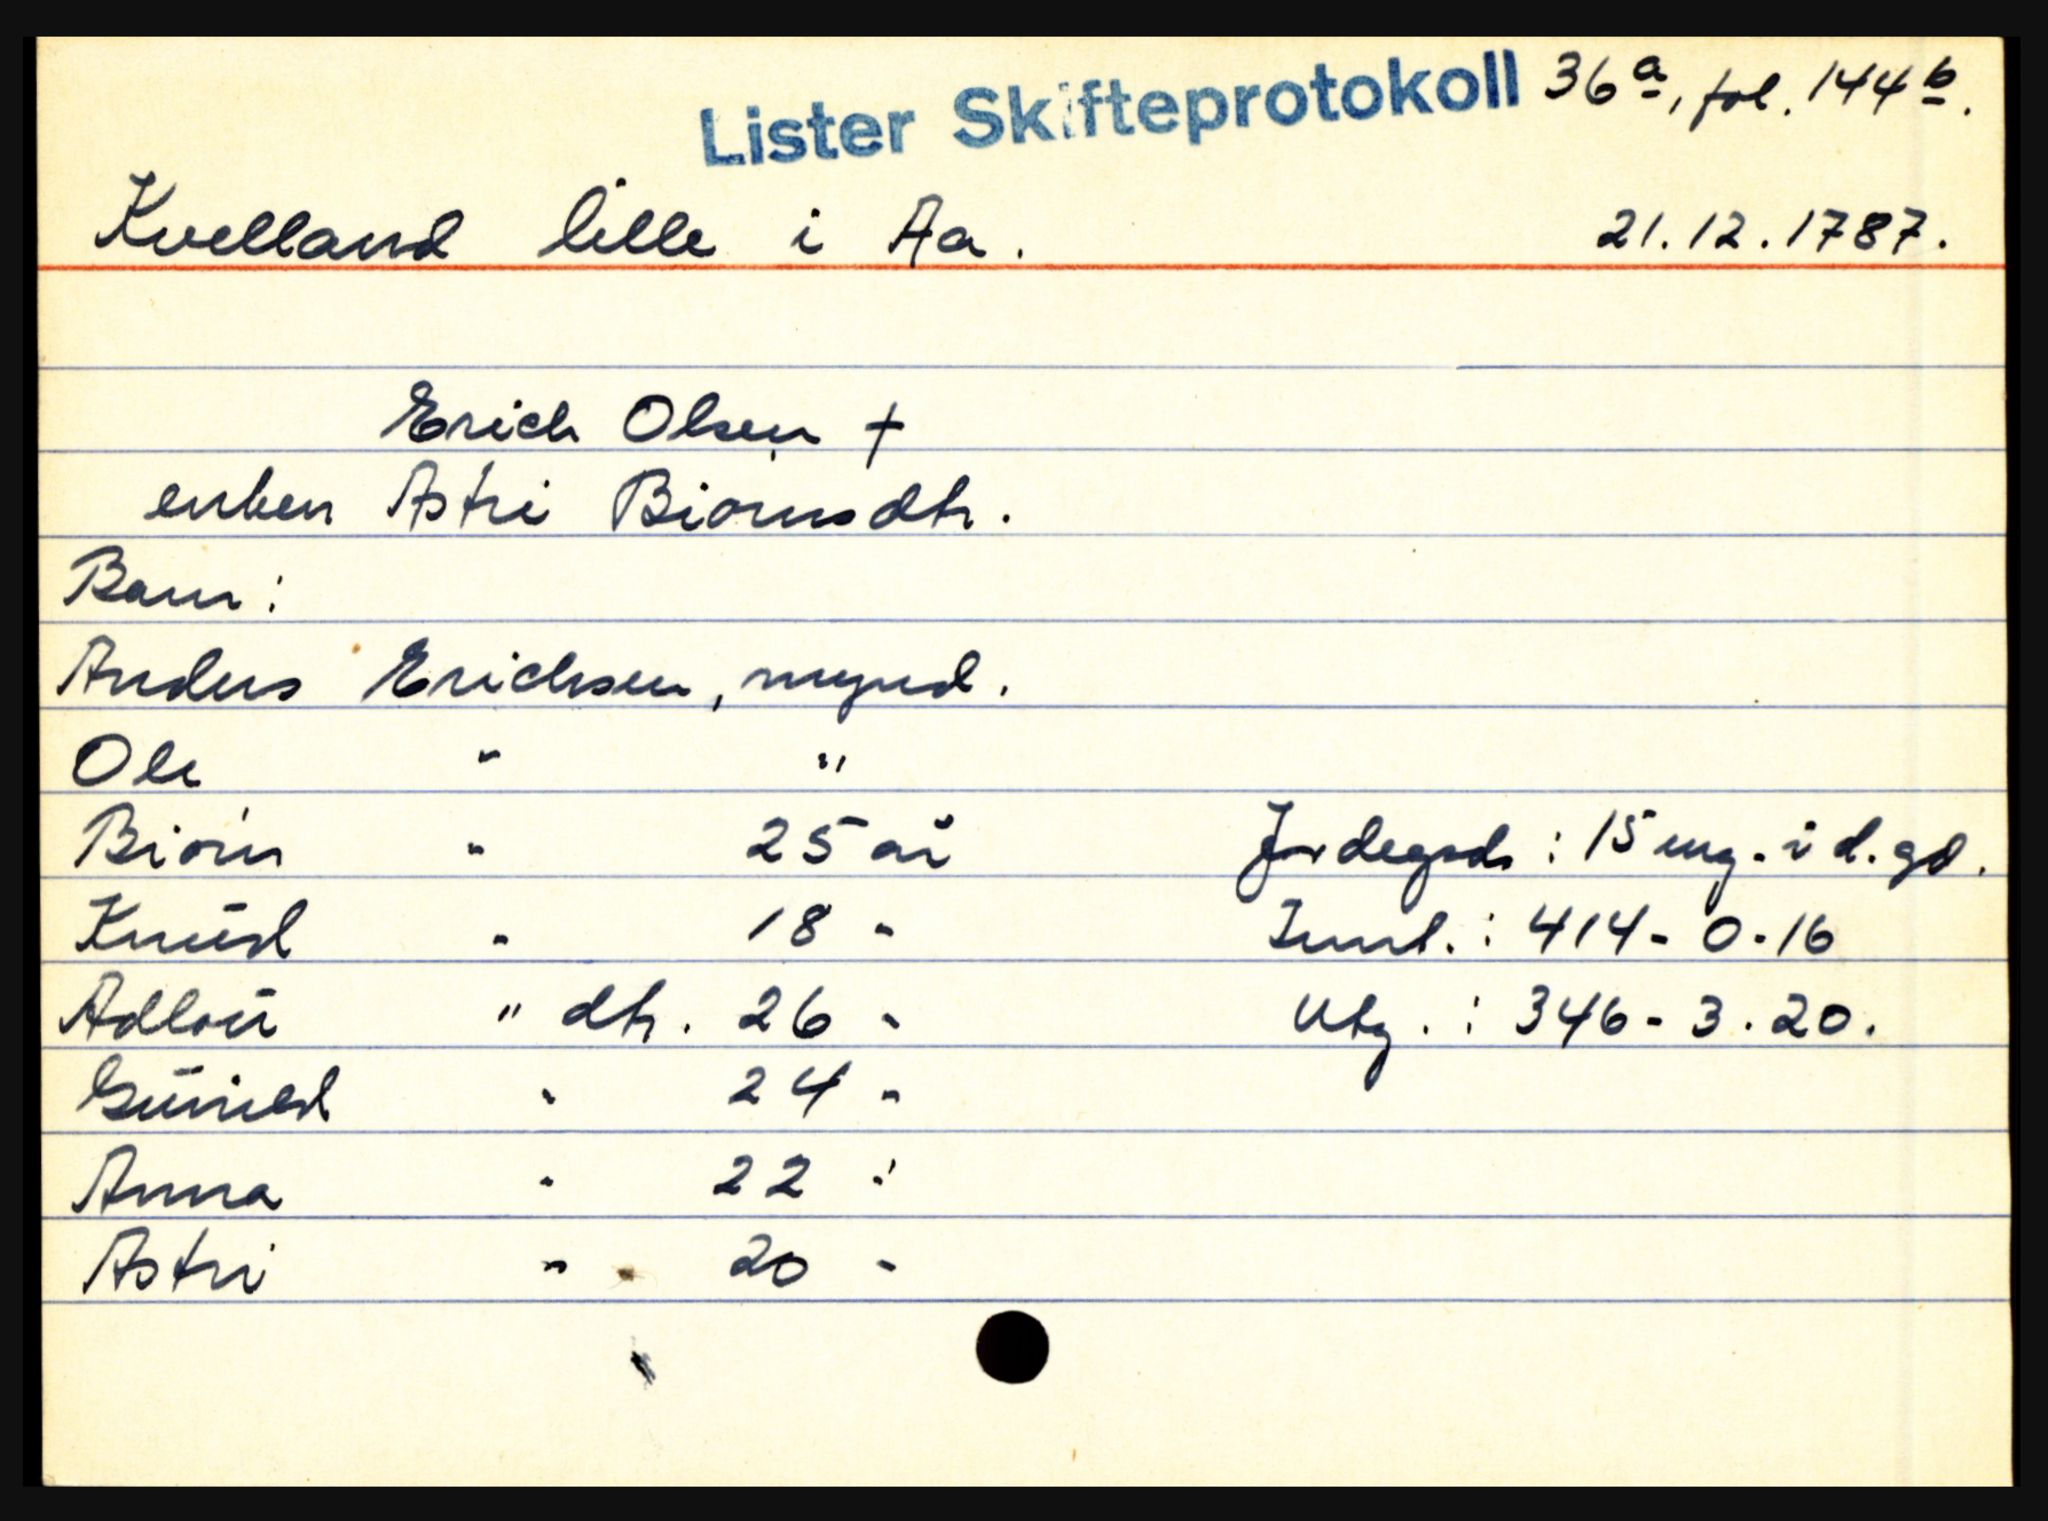 Lister Skifteprotokoll 36a, fol. 144b.
Kvelland lille i Aa. 21.12.1787.
Erich Olsen +
enken Astri Biørnsdtr.
Barn:
Anders Erichsen, mynd.
Ole " "
Biørn " 25 år Jordegods: 15 mrg. i d. gd.
Knud " 18 " Innt.: 414-0-16
Adlou " dtr. 26 " Utg.: 346-3-20.
Gunild " 24 "
Anna " 22 "
Astri " 20 "